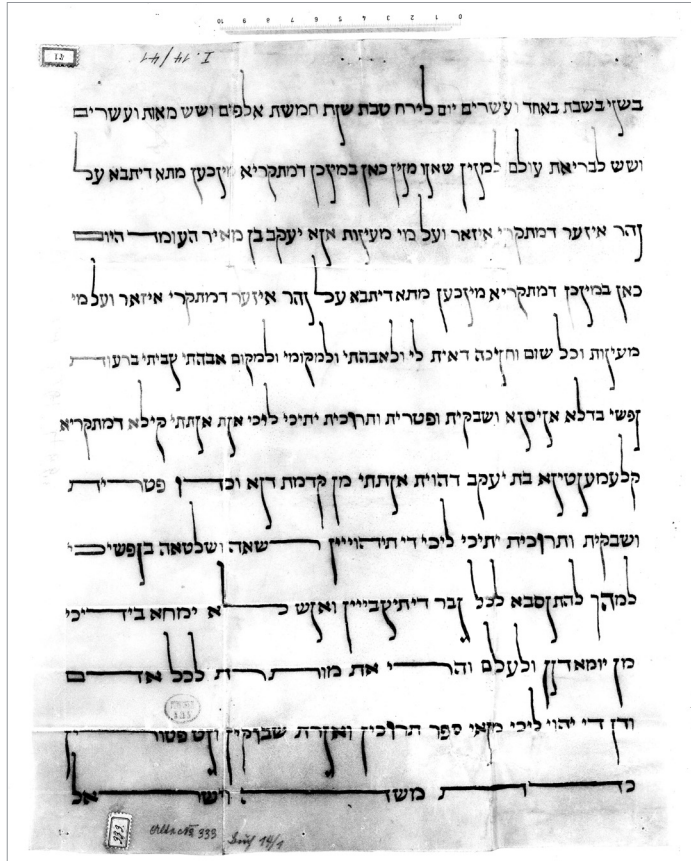 10 9 8 7 6 5 4 3 2 1 0
I. 14/41
41
בשני בשבת באחד ועשרים יום לירח טבת שנת חמשת אלפים ושש מאות ועשרים
ושש לבריאת עולם למנין שאנו מנין כאן במינכן דמתקריא מינכען מתא דיתבא על
נהר איזער דמתקרי איזאר ועל מי מעינות אנא יעקב בן מאיר העומד היום
כאן במינכן דמתקריא מינכען מתא דיתבא על נהר איזער דמתקרי איזאר ועל מי
מעינות וכל שום וחניכה דאית לי ולאבהתי ולמקומי ולמקום אבהתי צביתי ברעות
נפשי בדלא אניסנא ושבקית ופטרית ותרוכית יתיכי ליכי אנת אנתתי קילא דמתקריא
קלעמענטינא בת יעקב דהוית אנתתי מן קדמת דנא וכדן פטרית
ושבקית ותרוכית יתיכי ליכי די תיהוייין רשאה ושלטאה בנפשיכי
למהך להתנסבא לכל גבר דיתיצבייין ואנש לא ימחא בידיכי
מן יומא דנן ולעלם והרי את מותרת לכל אדם
ודן די יהוי ליכי מנאי ספר תרוכין ואגרת שבוקין וגט פטורין
כדת משה וישראל
333
333
14/1